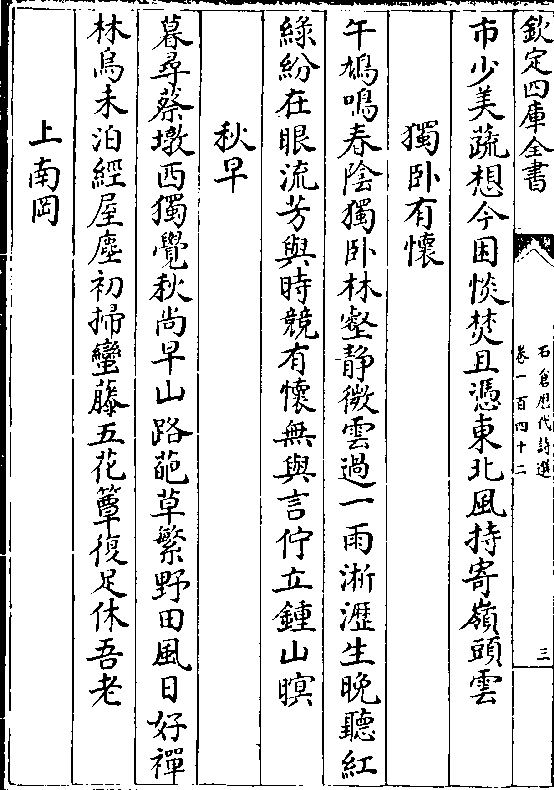 欽定四庫全書
石倉歷代詩選
卷一百四十二
三
市少美蔬想今困惔焚且憑東北風持寄嶺頭雲
獨卧有懷
午鳩鳴春陰獨卧林壑静微雲過一雨淅瀝生晚聽紅
綠紛在眼流芳與時競有懷無與言佇立鍾山暝
秋早
暮尋蔡墩西獨覺秋尚早山路葩草繁野田風日好禪
林烏未泊經屋塵初掃蠻藤五花簟復足休吾老
上南岡